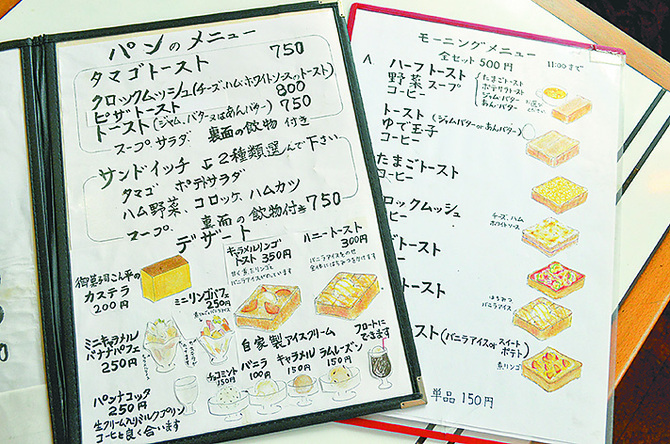 パンのメニュー
タマゴトースト 750
クロックムッシュ(チーズ、ハム、ホワイトソースのトースト)
ピザトースト 800
トースト(ジャム、バターヌはあんバター) 750
スープ サラダ 裏面の飲物 付き
サンドイッチ ↓2種類選んで下さい
タマゴ ポテトサラダ
ハム野菜、コロッケ、ハムカツ
スープ、裏面の飲物付き 750
デザート
御菓子司こん平の
カステラ
200円
ミニリンゴパフェ
250円
キャラメルリンゴ
トースト 350円
甘く煮たリンゴと
バニラアイスがのっています
ハニートースト
300円
バニラアイスをのせ
全体にはちみつをかけます
ミニキャラメル
バナナパフェ
250円
自家製アイスクリーム
チョコミント
150円
バニラ
100円
キャラメル
150円
ラムレーズン
150円
フロートに
できます
パンナコッタ
250円
生クリーム入りミルクプリン
コーヒーと良く合います
モーニングメニュー
全セット500円 11:00まで
ハーフトースト
野菜スープ
コーヒー
たまごトースト
ポテサラトースト
ジャム・バター
あん・バター
トースト(ジャムバター or あんバター)
ゆで玉子
コーヒー
たまごトースト
コーヒー
ロックムッシュ
ーヒー
チーズ、ハム
ホワイトソース
トースト
ー
トースト
ー
はちみつ
バニラアイス
スト(バニラアイス or スイートポテト)
煮リンゴ
単品150円